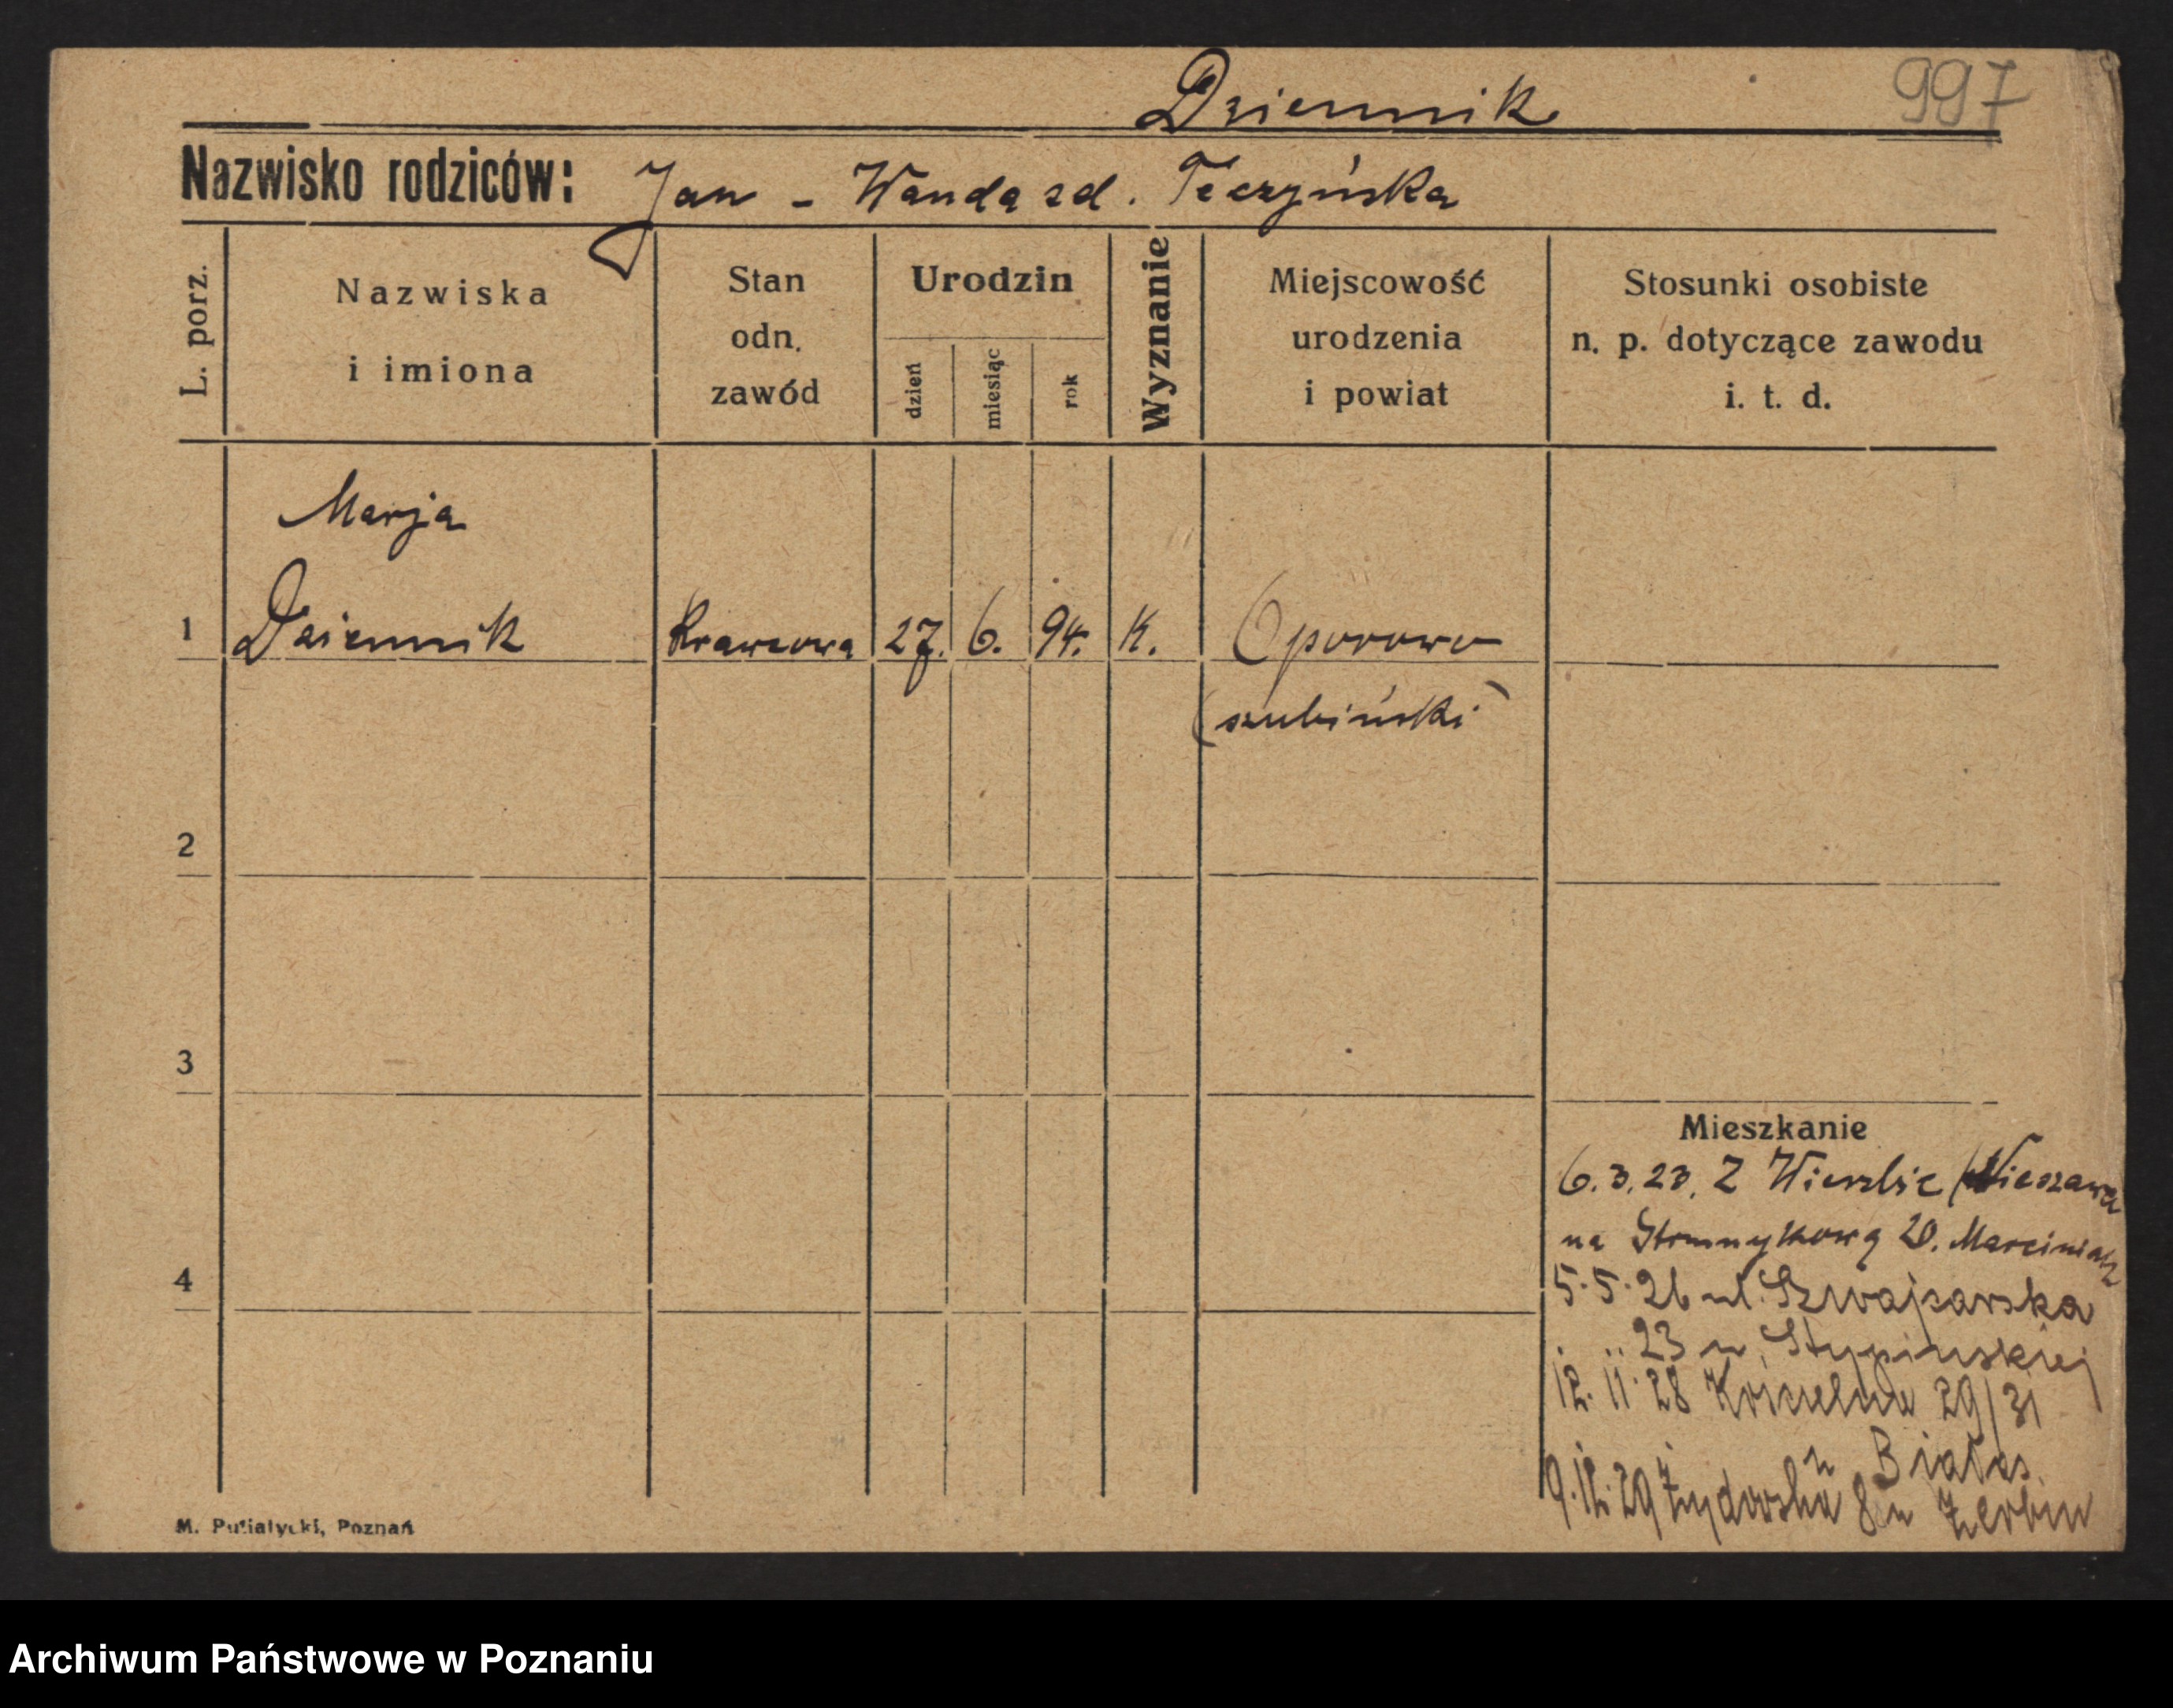 Dziennik
997
Nazwisko rodziców: Jan - Wanda zd. Teczyńska
L. porz.
Nazwiska i imiona
Stan odn. zawód
Urodzin
dzień
miesiąc
rok
Wyznanie
Miejscowość urodzenia i powiat
Stosunki osobiste n. p. dotyczące zawodu i. t. d.
Marja
1 Dziennik Krawcowa 27. 6. 94. K. Oporowo
(szubiński)
2
3
4
Mieszkanie
6.3.23. Z Wierzbic (Nieszawa
na 20. Marciniak
5.5.26 ul. Szwajcarska
23 u. Stypinskiej
12.11.28 Koscielna 29/31
u Białas
9.12.29 Żydowska 8
M. Putiatycki, Poznań
Archiwum Państwowe w Poznaniu